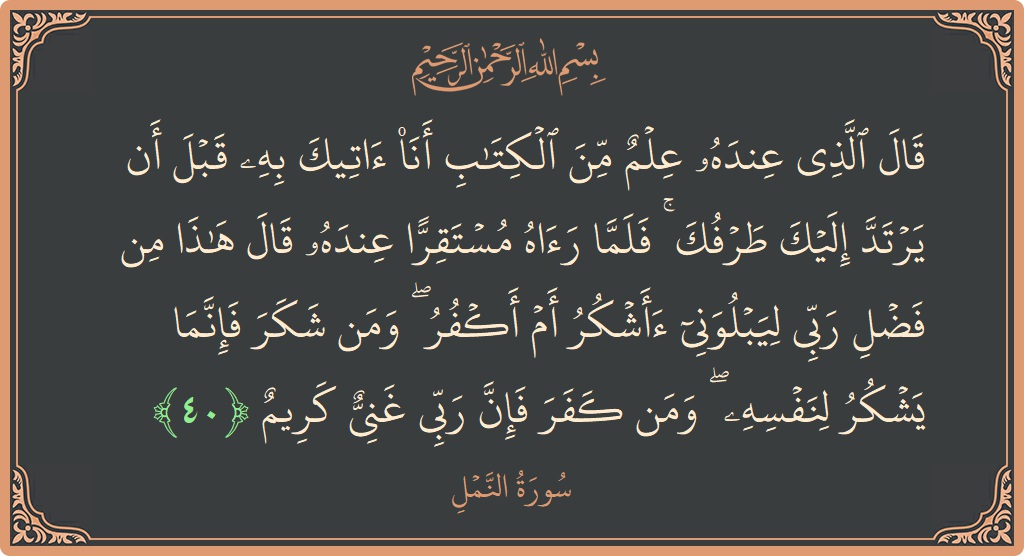 بِسْمِ اللَّهِ الرَّحْمَٰنِ الرَّحِيمِ
قَالَ ٱلَّذِى عِندَهُۥ عِلْمٌ مِّنَ ٱلْكِتَـٰبِ أَنَا۠ ءَاتِيكَ بِهِۦ قَبْلَ أَن
يَرْتَدَّ إِلَيْكَ طَرْفُكَ ۚ فَلَمَّا رَءَاهُ مُسْتَقِرًّا عِندَهُۥ قَالَ هَـٰذَا مِن
فَضْلِ رَبِّى لِيَبْلُوَنِىٓ ءَأَشْكُرُ أَمْ أَكْفُرُ ۖ وَمَن شَكَرَ فَإِنَّمَا
يَشْكُرُ لِنَفْسِهِۦ ۖ وَمَن كَفَرَ فَإِنَّ رَبِّى غَنِىٌّ كَرِيمٌ ﴿٤٠﴾
سُورَةُ النَّمْلِ